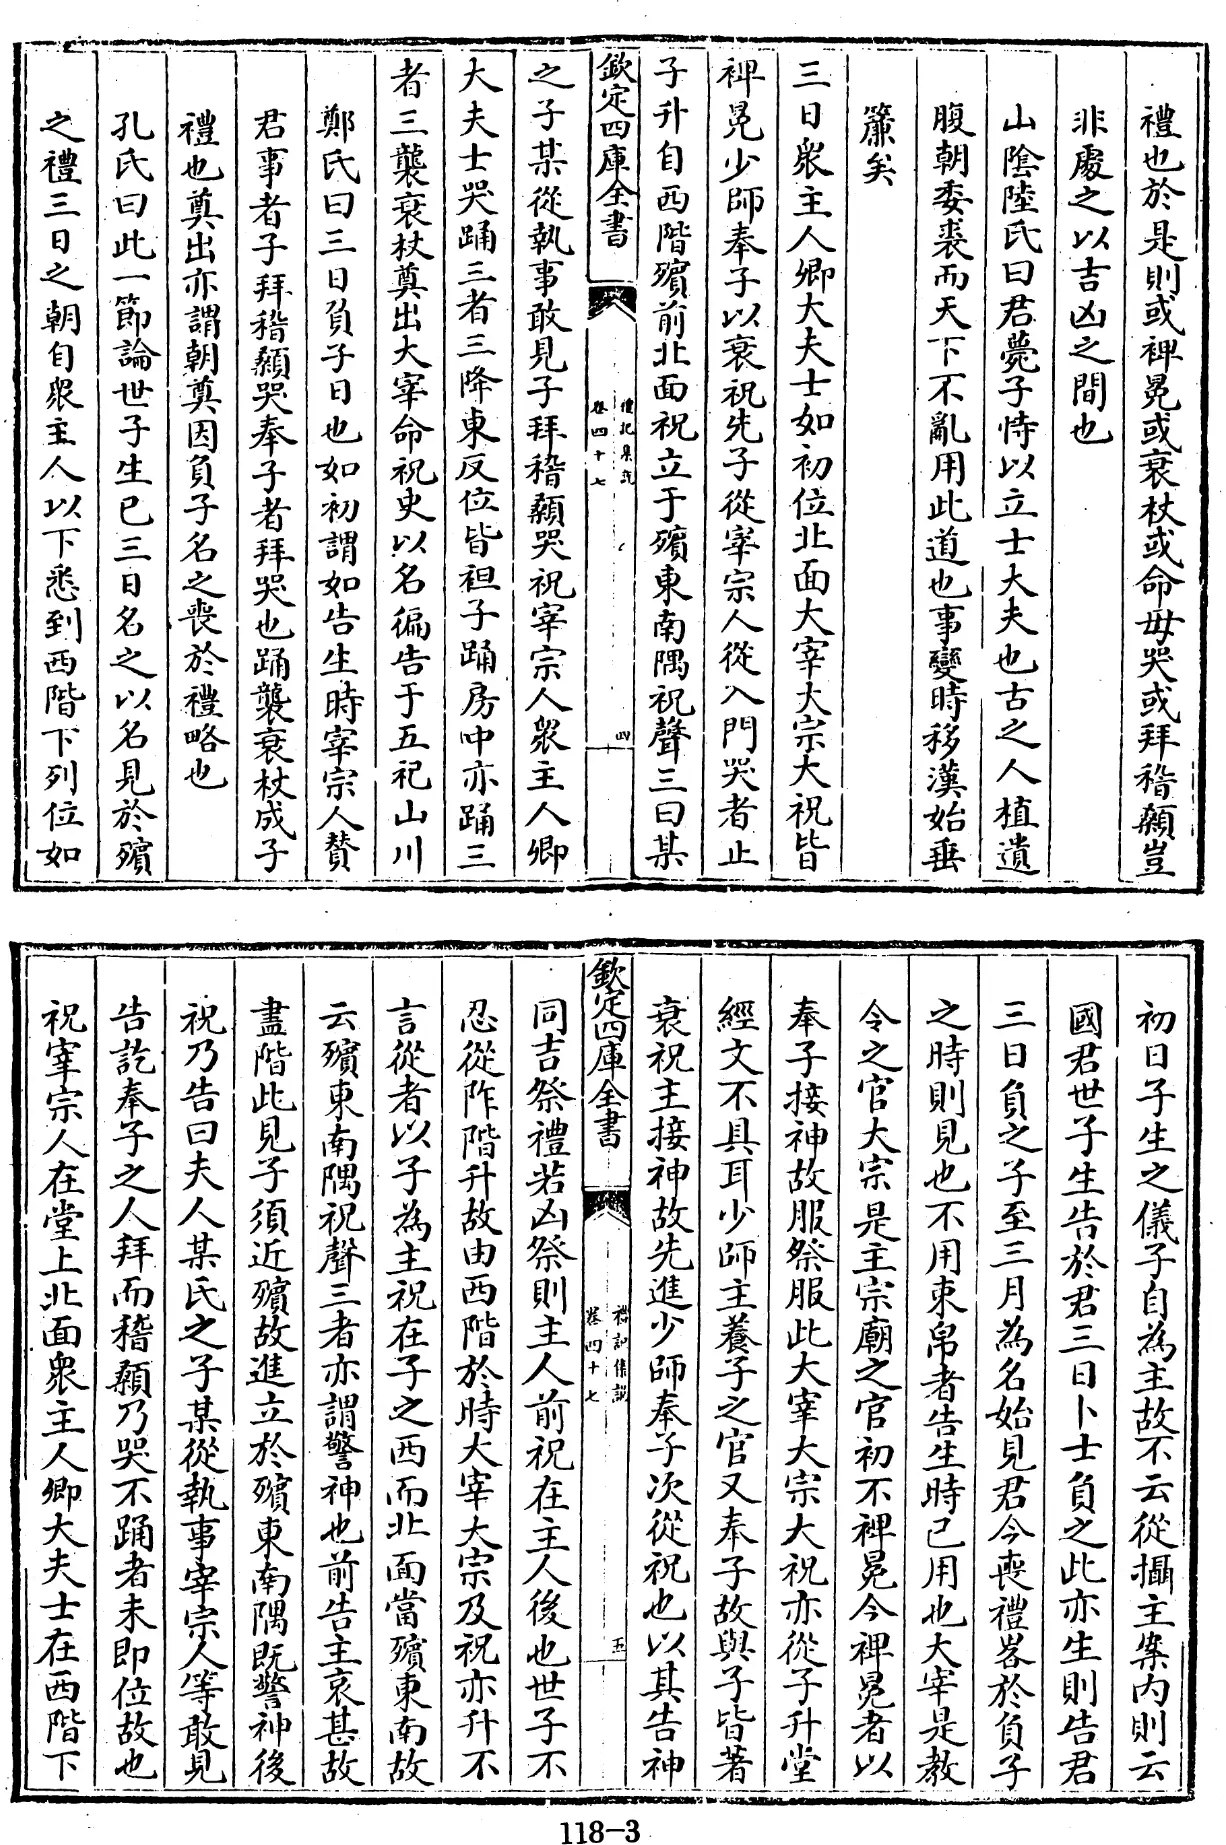 禮也於是則或裨冕或衰杖或命毋哭或拜稽顙豈
非處之以吉凶之間也
山陰陸氏曰君薨子恃以立士大夫也古之人植遺
腹朝委裘而天下不亂用此道也事變時移漢始垂
簾矣
三日衆主人卿大夫士如初位北面大宰大宗大祝皆
裨冕少師奉子以衰祝先子從宰宗人從入門哭者止
子升自西階殯前北面祝立于殯東南隅祝聲三曰某
欽定四庫全書
禮記集說
卷四十七
四
之子某從執事敢見子拜稽顙哭祝宰宗人衆主人卿
大夫士哭踊三者三降東反位皆袒子踊房中亦踊三
者三襲衰杖奠出大宰命祝史以名徧告于五祀山川
鄭氏曰三日負子日也如初謂如告生時宰宗人贊
君事者子拜稽顙哭奉子者拜哭也踊襲衰杖成子
禮也奠出亦謂朝奠因負子名之喪於禮略也
孔氏曰此一節論世子生已三日名之以名見於殯
之禮三日之朝自衆主人以下悉到西階下列位如
初日子生之儀子自為主故不云從攝主案內則云
國君世子生告於君三日卜士負之此亦生則告君
三日負之子至三月為名始見君今喪禮畧於負子
之時則見也不用束帛者告生時已用也大宰是教
令之官大宗是主宗廟之官初不裨冕今裨冕者以
奉子接神故服祭服此大宰大宗大祝亦從子升堂
經文不具耳少師主養子之官又奉子故與子皆著
衰祝主接神故先進少師奉子次從祝也以其告神
欽定四庫全書
禮記集說
卷四十七
五
同吉祭禮若凶祭則主人前祝在主人後也世子不
忍從阼階升故由西階於時大宰大宗及祝亦升不
言從者以子為主祝在子之西而北面當殯東南故
云殯東南隅祝聲三者亦謂警神也前告主哀甚故
盡階此見子須近殯故進立於殯東南隅既警神後
祝乃告曰夫人某氏之子某從執事宰宗人等敢見
告訖奉子之人拜而稽顙乃哭不踊者未即位故也
祝宰宗人在堂上北面衆主人卿大夫士在西階下
118-3